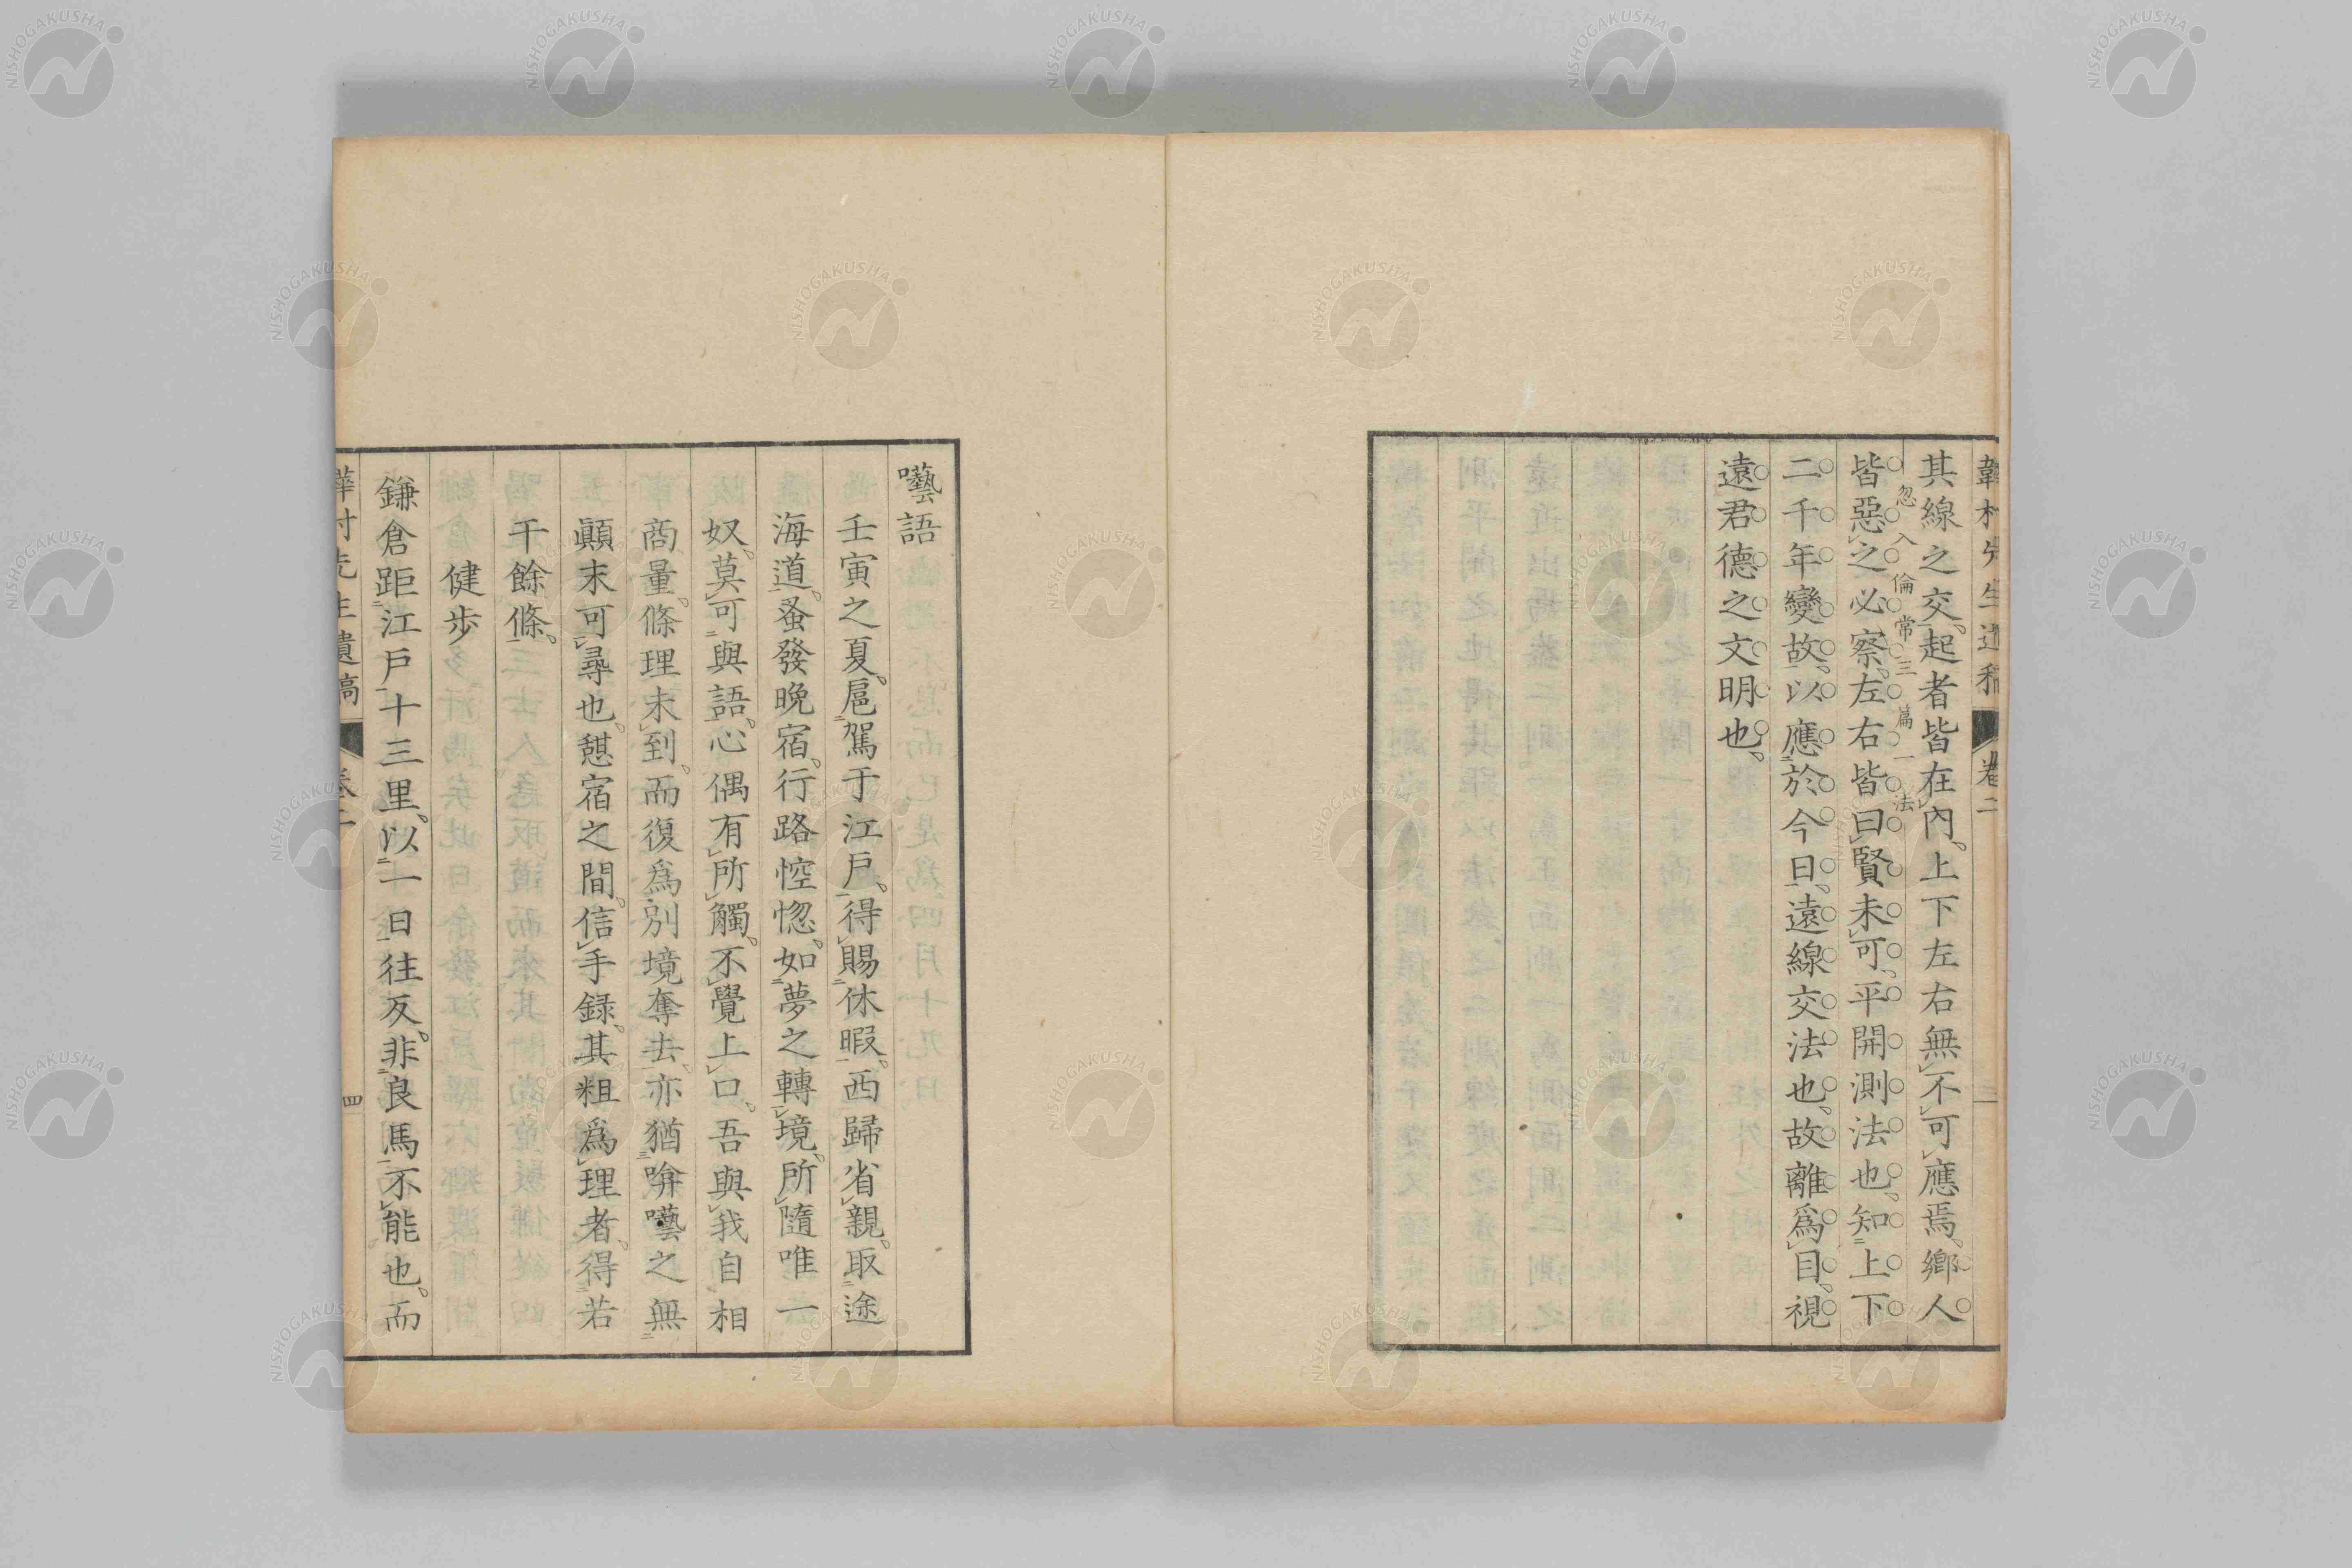 韡村先生遺稿 卷二 三
其線之交。起者皆在內。上下左右無不可應焉。鄉人
忽入倫常三篇一法
皆惡之必察。左右皆曰賢未可。平開測法也。知上下
二千年變故。以應於今日。遠線交法也。故離爲目。視
遠君德之文明也。
囈語
壬寅之夏。扈駕于江戶。得賜休暇。西歸省親。取途
海道。蚤發晚宿。行路悾惚。如夢之轉境。所隨唯一
奴。莫可與語。心偶有所觸。不覺上口。吾與我自相
商量。條理未到。而復爲別境奪去。亦猶唹囈之無
顚末可尋也。憇宿之間。信手録。其粗爲理者。得若
干餘條。
健步
鎌倉距江戶十三里。以一日往反。非良馬不能也。而
韡村先生遺稿 卷二 四
NISHOGAKUSHA